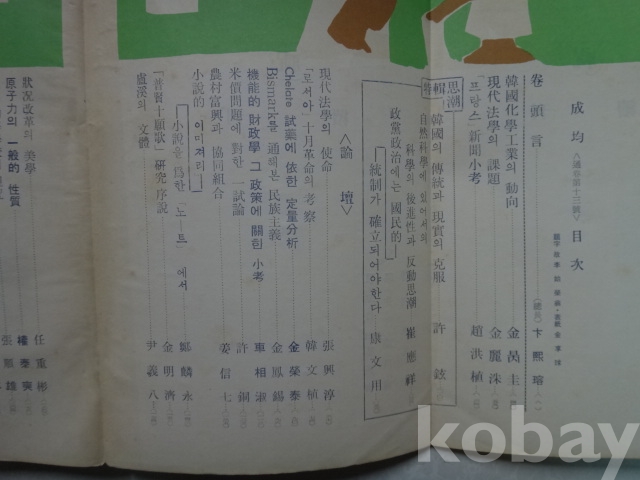 成均 目次
卷頭言 卞熙瑢
韓國化學工業의 動向 金昷圭
現代法學의 課題 金麗洙
「프랑스」新聞小考 趙洪植
思潮
特輯
韓國의 傳統과 現實의 克服 許鉉
自然科學에 있어서의
科學의 後進性과 反動思潮 崔應祥
政黨政治에는 國民的
統制가 確立되어야한다 康文用
<論壇>
現代法學의 使命 張興淳
「로서아」十月革命의 考察 韓文植
Chelate 試藥에 依한 定量分析 金榮泰
Bismark를 通해본 民族主義 金鳳錫
機能的 財政學 그 政策에 關한 小考 車相淑
米價問題에 對한 一試論 許洞
農村富興과 協同組合 姜信七
小說的 이미져리
小說을 爲한「노-트」에서 鄭麟永
「普賢十願歌」硏究序說 金明濟
盧溪의 文體 尹義八
狀況改革의 美學 任重彬
原子力의 一般的 性質
kobay